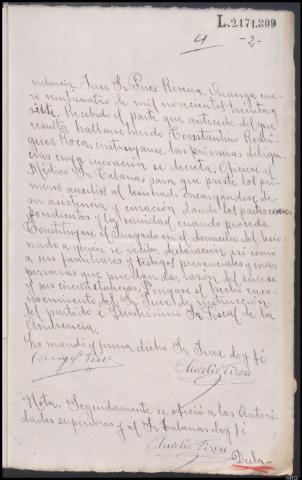 L.2171.809
4 -2-
videncia. Juez Sr Perez Rivera. Guanga ene-
ro veinticuatro de mil novecientos treinta y
siete. Recibido el parte que antecede del que
resulta hallarse herido Constantino Rodri-
guez Roca, instruyanse las primeras diligen-
cias cuya incoación se decreta. Oficiese al
Médico Sr Cabanas para que preste los pri-
meros auxilios al lesionado encargandose de
su asistencia y curación dando los partes corres-
pondientes y la sanidad cuando proceda.
Constituyase el Juzgado en el domicilio del lesio-
nado a quien se reciba declaración asi como
a sus familiares y testigos presenciales y mas
personas que puedan dar razón del suceso
y sus circunstancias. Pongase el hecho en co-
nocimiento del Sr Juez de instrucción
del partido e Ilustrisimo Sr Fiscal de la
Audiencia.
Lo mando y firma dicho Sr Juez doy fé
Perez
Aurelio
Nota. Seguidamente se ofició a las Autori-
dades superiores y al Sr Cabanas doy fé
Aurelio
Decla-